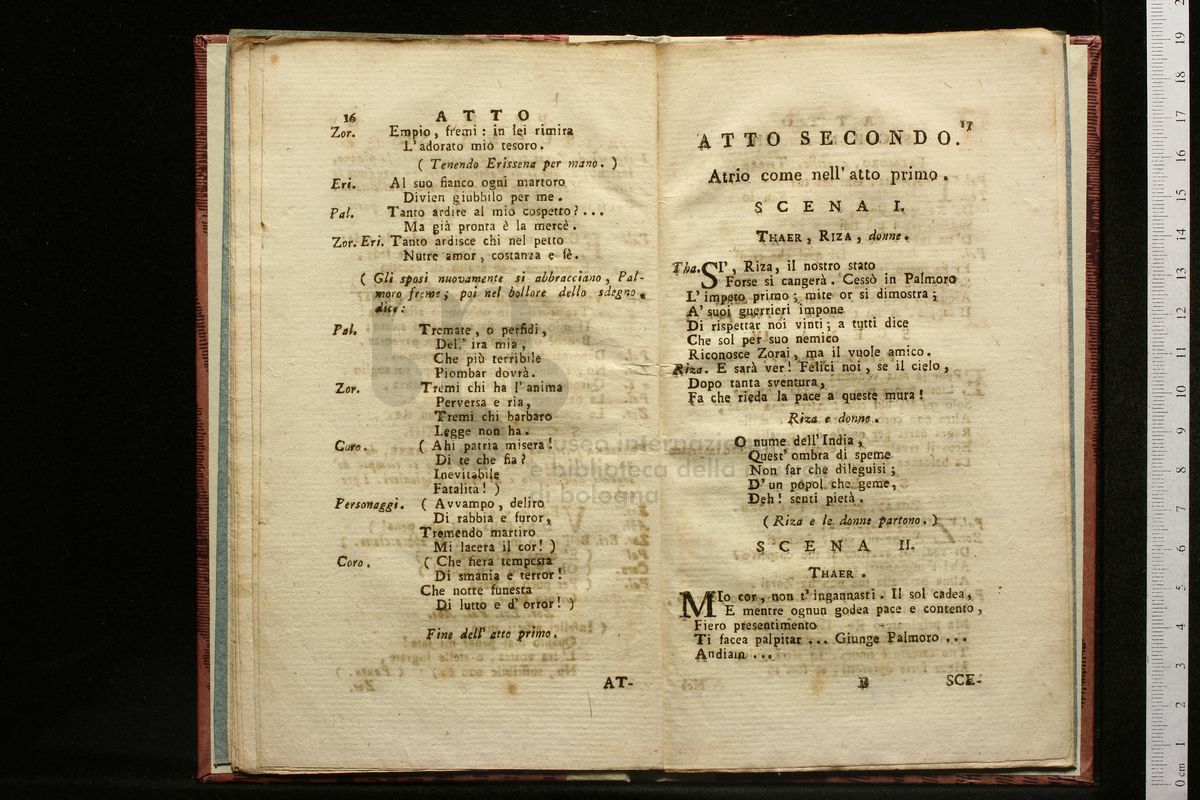 16 ATTO
Zor. Empio, fremi: in lei rimira
L'adorato mio tesoro.
( Tenendo Erissena per mano. )
Eri. Al suo fianco ogni martoro
Divien giubbilo per me.
Pal. Tanto ardire al mio cospetto?...
Ma già pronta è la mercè.
Zor. Eri. Tanto ardisce chi nel petto
Nutre amor, costanza e fè.
( Gli sposi nuovamente si abbracciano, Pal-
moro freme; poi nel bollore dello sdegno
dice:
Pal. Tremate, o perfidi,
Dell'ira mia,
Che più terribile
Piombar dovrà.
Zor. Tremi chi ha l'anima
Perversa e ria,
Tremi chi barbaro
Legge non ha.
Coro. ( Ahi patria misera!
Di te che fia?
Inevitabile
Fatalità! )
Personaggi. ( Avvampo, deliro
Di rabbia e furor,
Tremendo martiro
Mi lacera il cor! )
Coro. ( Che fiera tempesta
Di smania e terror!
Che notte funesta
Di lutto e d'orror! )
Fine dell'atto primo.
AT-
17
ATTO SECONDO.
Atrio come nell'atto primo.
SCENA I.
THAER, RIZA, donne.
Tha. SI', Riza, il nostro stato
Forse si cangerà. Cessò in Palmoro
L'impeto primo; mite or si dimostra;
A' suoi guerrieri impone
Di rispettar noi vinti; a tutti dice
Che sol per suo nemico
Riconosce Zorai, ma il vuole amico.
Riza. E sarà ver! Felici noi, se il cielo,
Dopo tanta sventura,
Fa che rieda la pace a queste mura!
Riza e donne.
O nume dell'India,
Quest'ombra di speme
Non far che dileguisi;
D'un popol che geme,
Deh! senti pietà.
( Riza e le donne partono. )
SCENA II.
THAER.
MIo cor, non t'ingannasti. Il sol cadea,
E mentre ognun godea pace e contento,
Fiero presentimento
Ti facea palpitar ... Giunge Palmoro ...
Andiam ...
B SCE-
museo internazionale
e biblioteca della
di bologna